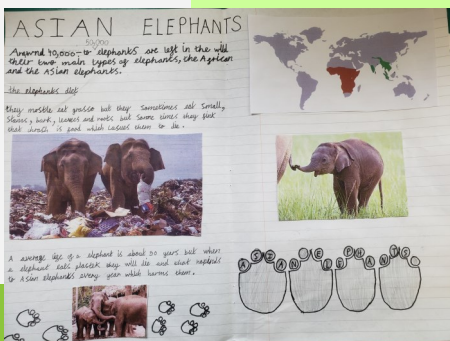 ASIAN ELEPHANTS
50,000
Around 40,000-to elephants are left in the wild
their two main types of elephants, the African
and the Asian elephants.
the elephants diet
they mostle eat grasso but they sometimes eat small,
bark, leaves and roots but some times they
that is food which them to die.
A average age of a elephant is about 50 years but when
a elephant eats they will die and that
to Asian elephants every year which harms them.
ASIAN ELEPHANTS